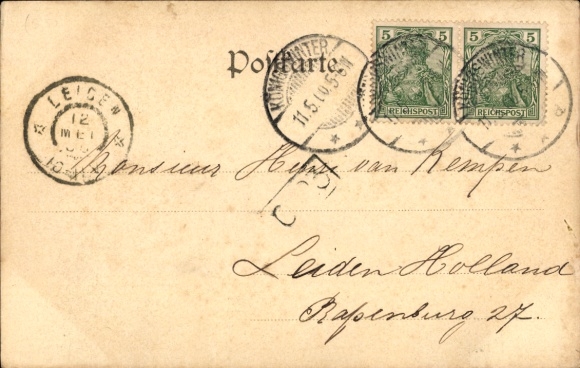 Postkarte
5 5
5 5
REICHSPOST
REICHSPOST
KÖNIGSWINTER
11.5.
LEIDEN
12
MEI
Monsieur van Kempen
Leiden Holland
Rapenburg 27.